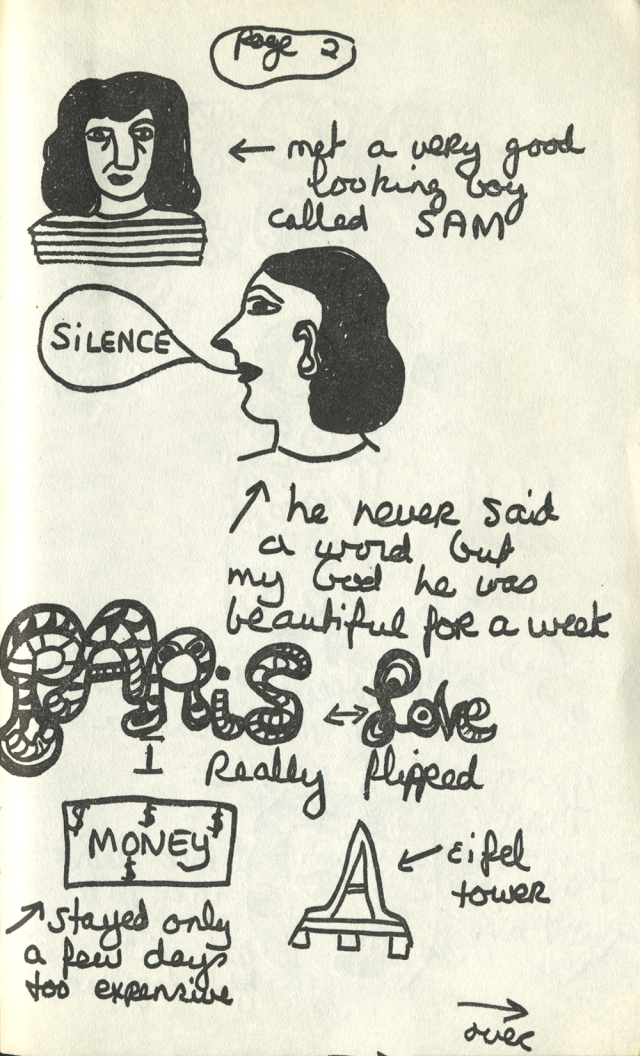 Page 2
← met a very good
looking boy
called SAM
SiLENCE
↗ he never said
a word but
my God he was
beautiful for a week
PARiS ↔ Love
I Really flipped
$ $ $
MONEY
$
← Eifel
tower
↗ stayed only
a few days
too expensive
→
over